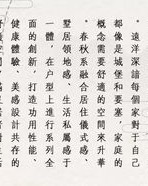 。遠洋深諳每個家對于自己
都像是城堡和要塞，家庭的
概念需要舒適的空間來升華
。春秋系融合居住儀式感、
墅居領地感、生活私屬感于
一體，在戶型上進行系列全
面的創新，打造功用性能、
健康體驗、美感設計共存的